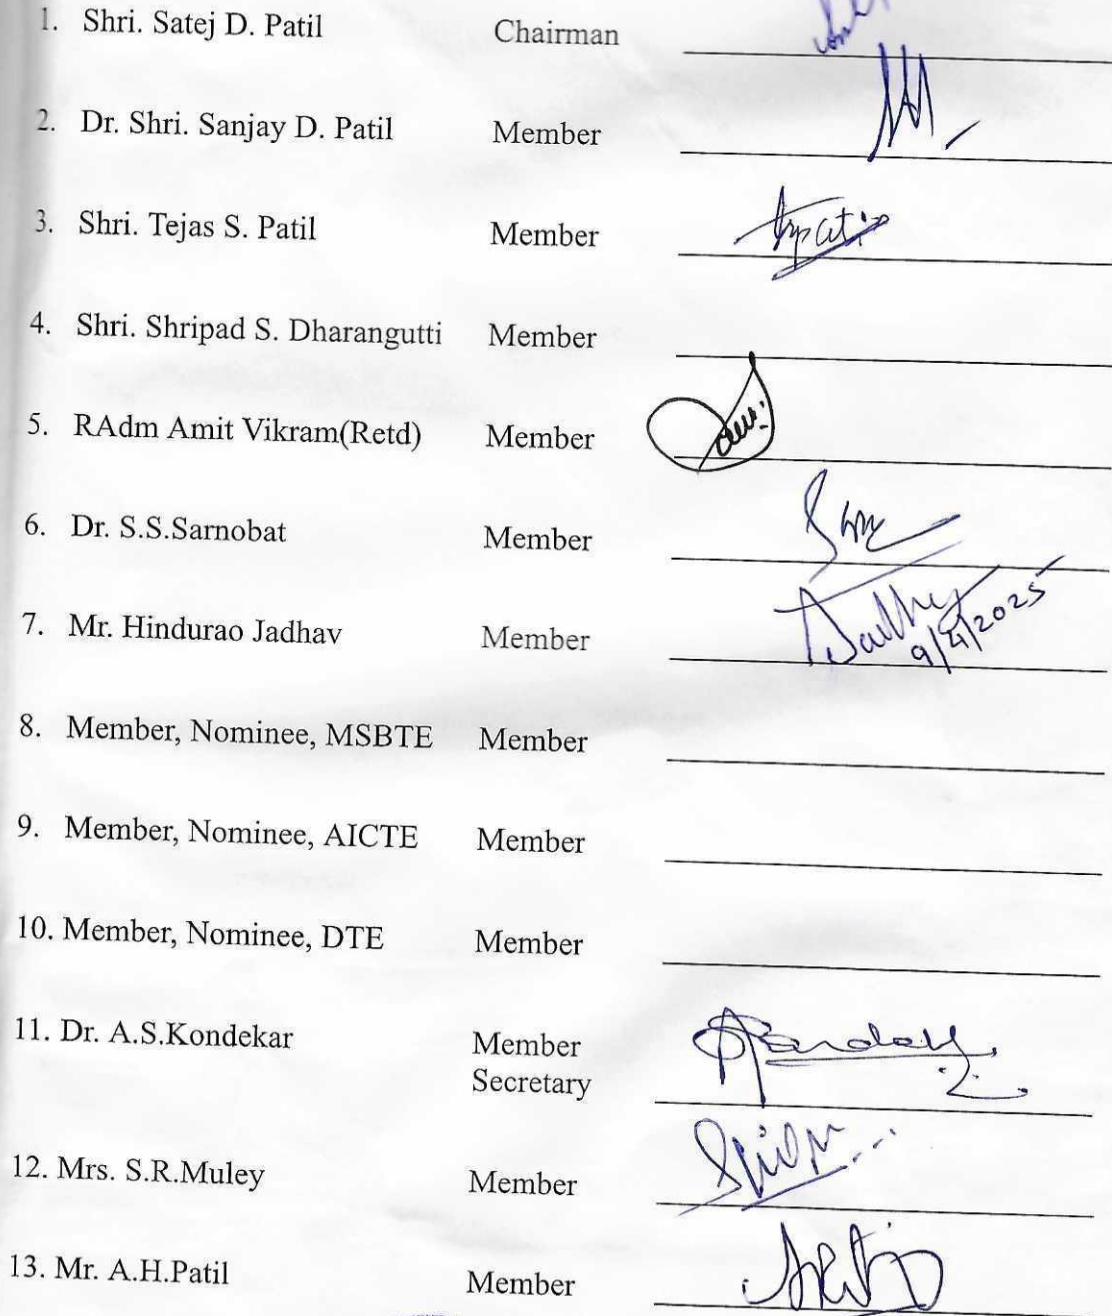 1. Shri. Satej D. Patil Chairman
2. Dr. Shri. Sanjay D. Patil Member
3. Shri. Tejas S. Patil Member
4. Shri. Shripad S. Dharangutti Member
5. RAdm Amit Vikram(Retd) Member
6. Dr. S.S.Sarnobat Member
7. Mr. Hindurao Jadhav Member 9/4/2025
8. Member, Nominee, MSBTE Member
9. Member, Nominee, AICTE Member
10. Member, Nominee, DTE Member
11. Dr. A.S.Kondekar Member
Secretary
12. Mrs. S.R.Muley Member
13. Mr. A.H.Patil Member